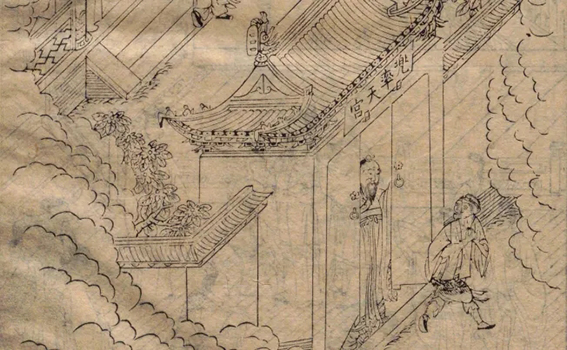 兜率天宮